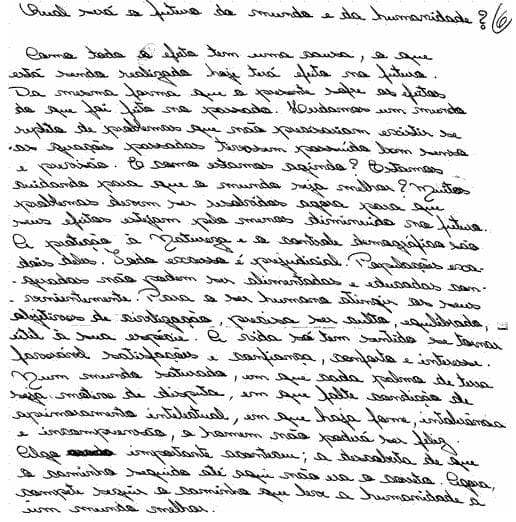 Qual será o futuro do mundo e da humanidade? 6
Como todo o efeito tem uma causa, o que
está sendo realizado hoje terá efeito no futuro.
Da mesma forma que o presente sofre os efeitos
do que foi feito no passado. Herdamos um mundo
repleto de problemas que não precisariam existir se
as gerações passadas tivessem possuído bom senso
e previsão. E como estamos agindo? Estamos
cuidando para que o mundo seja melhor? Muitos
problemas devem ser resolvidos agora para que
seus efeitos estejam pelo menos diminuindo no futuro.
A proteção à Natureza e o controle demográfico são
dois deles. Todo excesso é prejudicial. Populações exa-
geradas não podem ser e educadas con-
venientemente. Para o ser humano atingir os seus
objetivos de realização, precisa ser culto, equilibrado,
útil à sua espécie. A vida só tem sentido se
possíveis satisfações e confiança, conforto e interesse.
Num mundo saturado, em que cada palmo de terra
seja motivo de disputa, em que falte condição de
aprimoramento intelectual, em que haja fome, intolerância
e incompreensão, o homem não poderá ser feliz.
Algo importante aconteceu; a descoberta de que
o caminho seguido até aqui não era o certo. Agora,
compete seguir o caminho que leve a humanidade a
um mundo melhor.